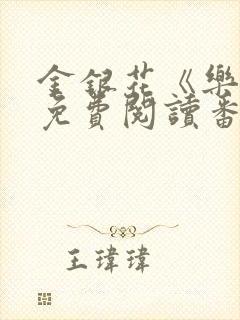 金銀花《樂
免費閱讀番
王瑋瑋